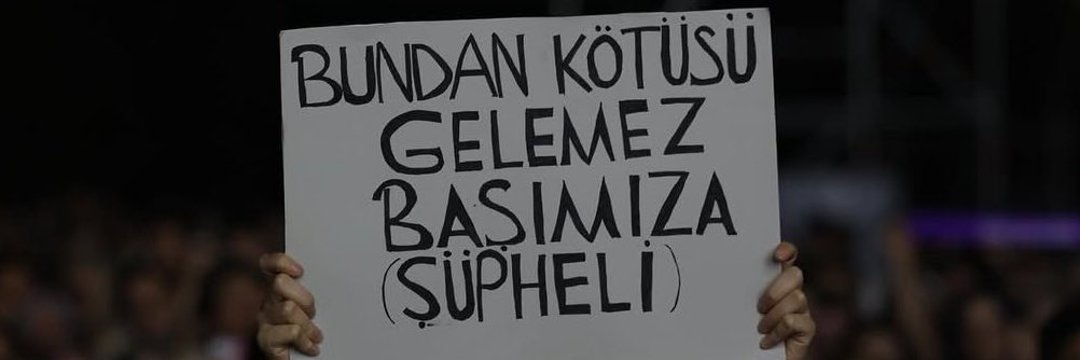 BUNDAN KÖTÜSÜ
GELEMEZ
BAŞIMIZA
(ŞÜPHELİ)